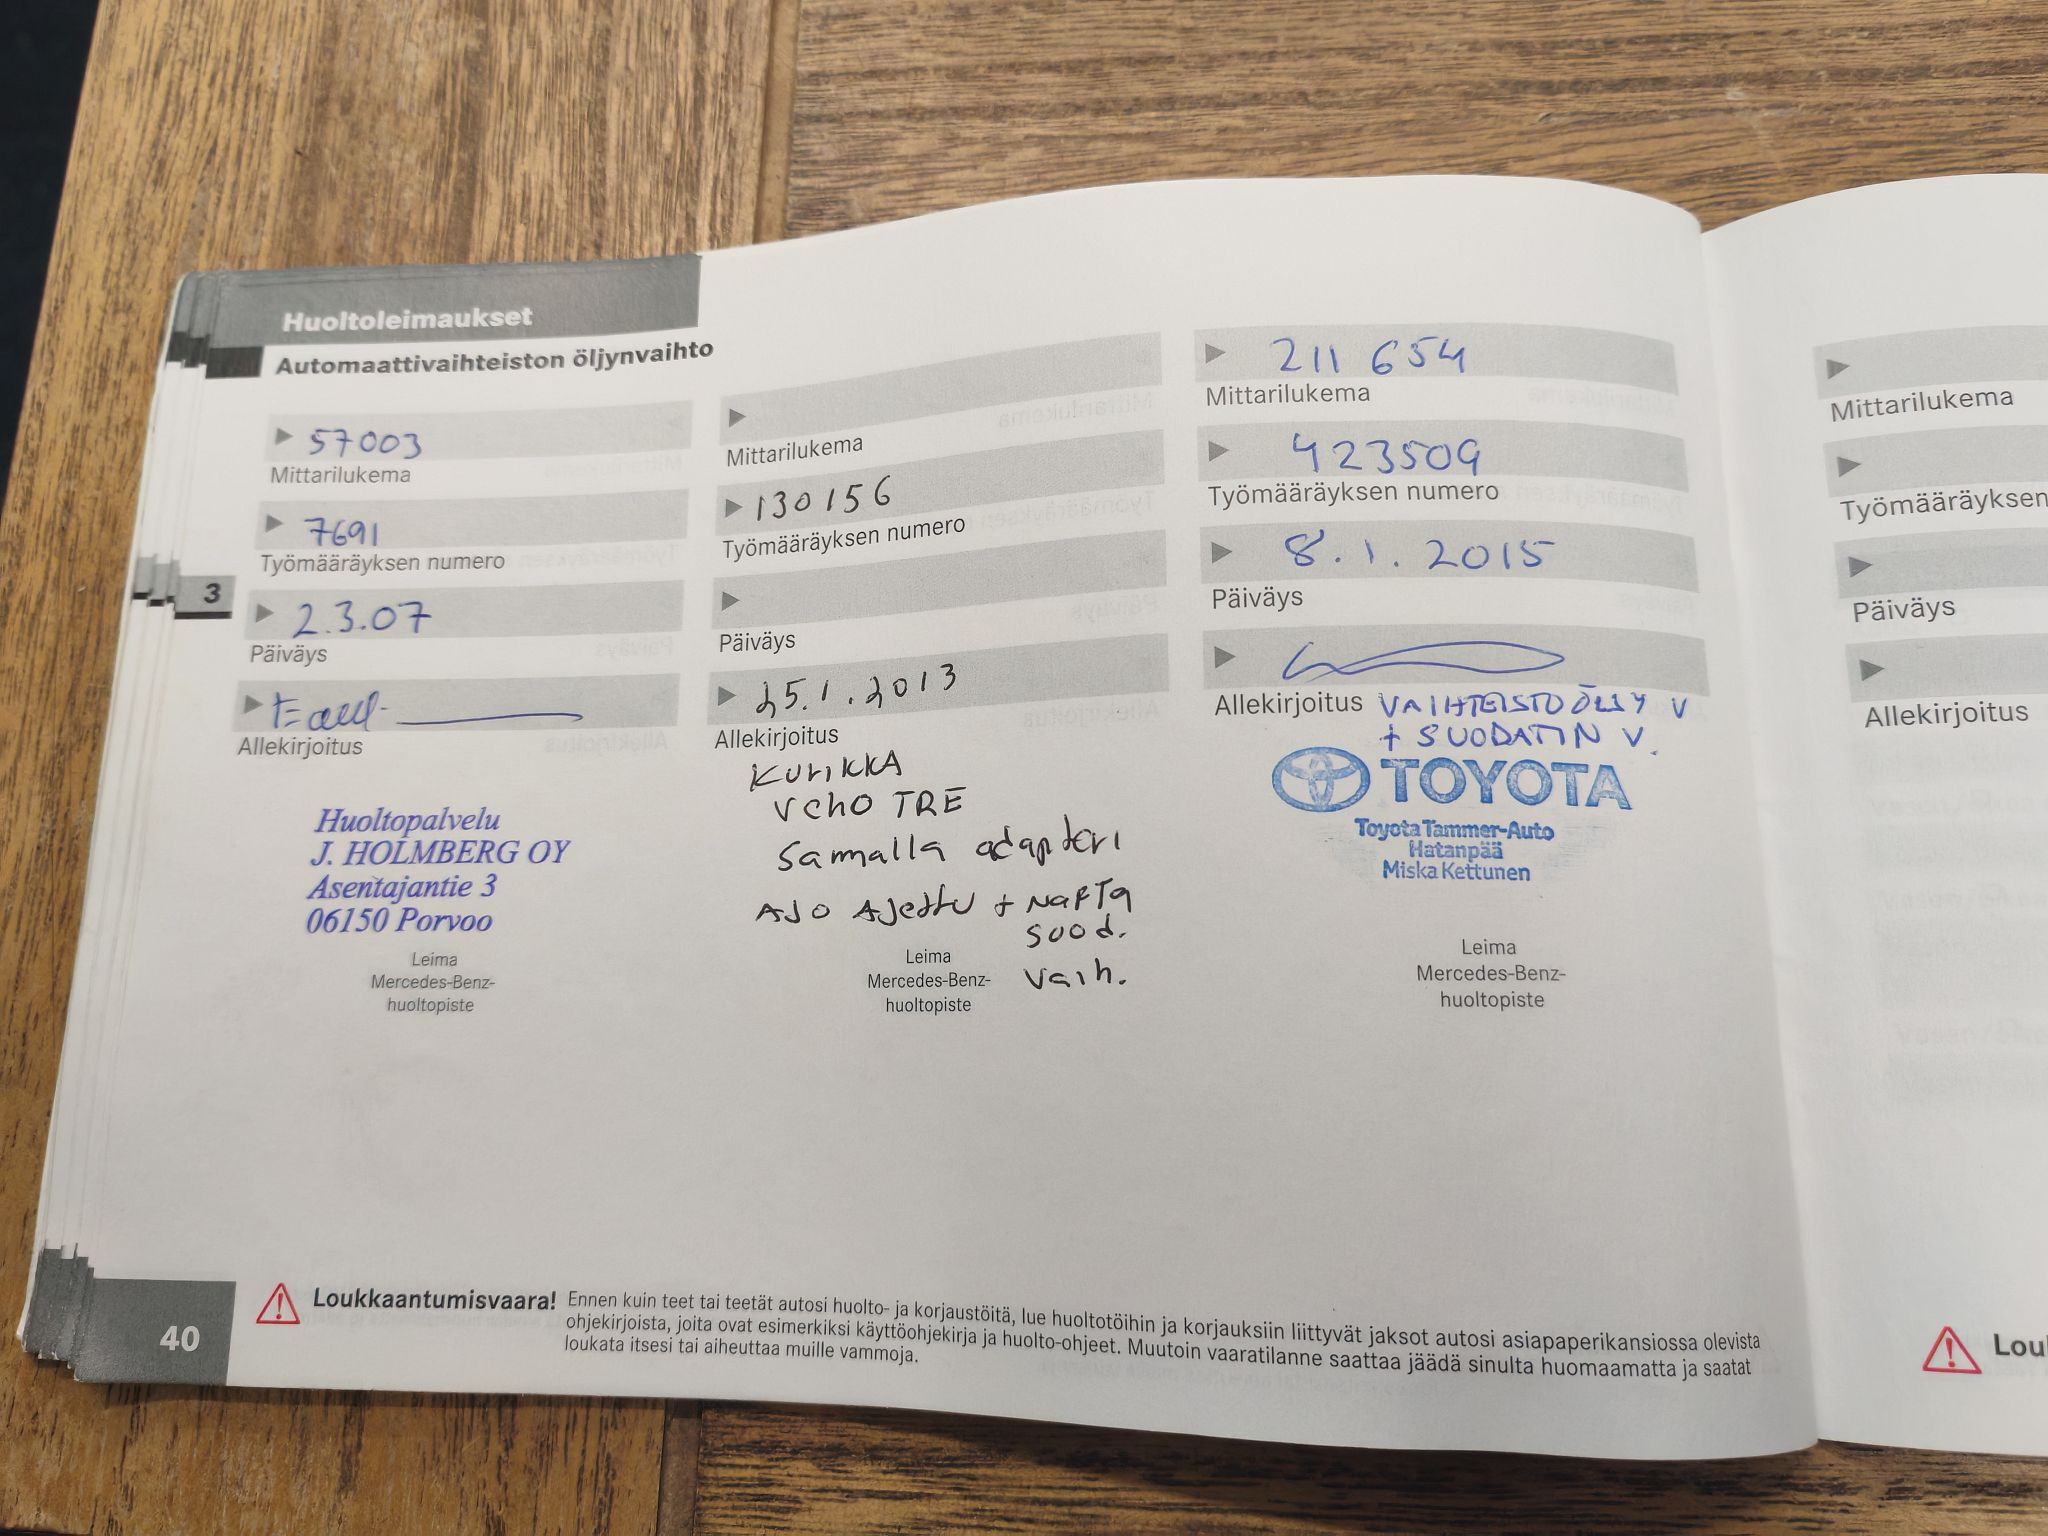 Huoltoleimaukset
Automaattivaihteiston öljynvaihto
57003
Mittarilukema
7691
Työmääräyksen numero
2.3.07
Päiväys
Allekirjoitus
Huoltopalvelu
J. HOLMBERG OY
Asentajantie 3
06150 Porvoo
Leima
Mercedes-Benz-
huoltopiste
Mittarilukema
130156
Työmääräyksen numero
Päiväys
25.1.2013
Allekirjoitus
KURIKKA
VEHO TRE
Samalla adapteri
AJO AJettu + NAFTA
suod.
Vaih.
Leima
Mercedes-Benz-
huoltopiste
211 654
Mittarilukema
423509
Työmääräyksen numero
8.1.2015
Päiväys
Allekirjoitus
VAIHTEISTOÖLJY V
+ SUODATIN V.
TOYOTA
Toyota Tammer-Auto
Hatanpää
Miska Kettunen
Leima
Mercedes-Benz-
huoltopiste
3
40
Loukkaantumisvaara! Ennen kuin teet tai teetät autosi huolto- ja korjaustöitä, lue huoltotöihin ja korjauksiin liittyvät jaksot autosi asiapaperikansiossa olevista
ohjekirjoista, joita ovat esimerkiksi käyttöohjekirja ja huolto-ohjeet. Muutoin vaaratilanne saattaa jäädä sinulta huomaamatta ja saatat
loukata itsesi tai aiheuttaa muille vammoja.
Mittarilukema
Työmääräyksen
Päiväys
Allekirjoitus
Lou